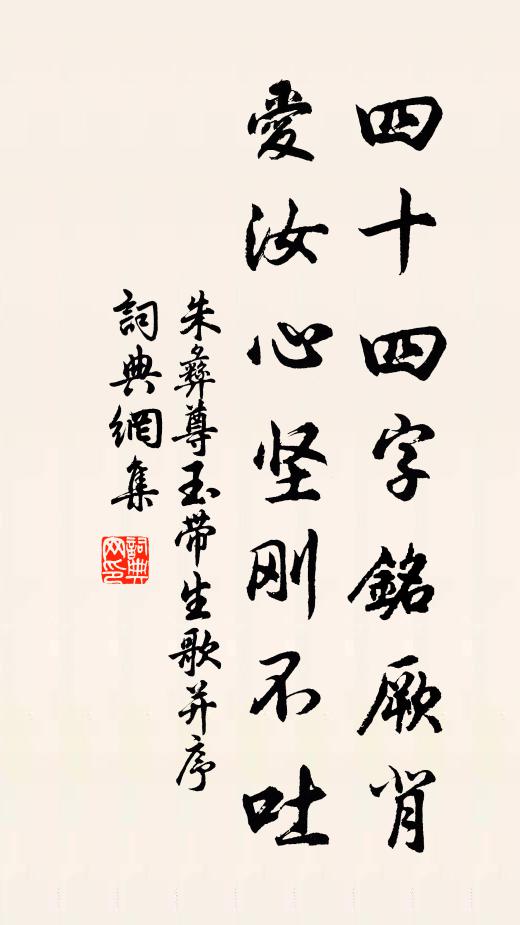 四十四字銘厥背
愛汝心坚刚不吐
朱彝尊玉带生歌并序
詞典網集
詞典網印